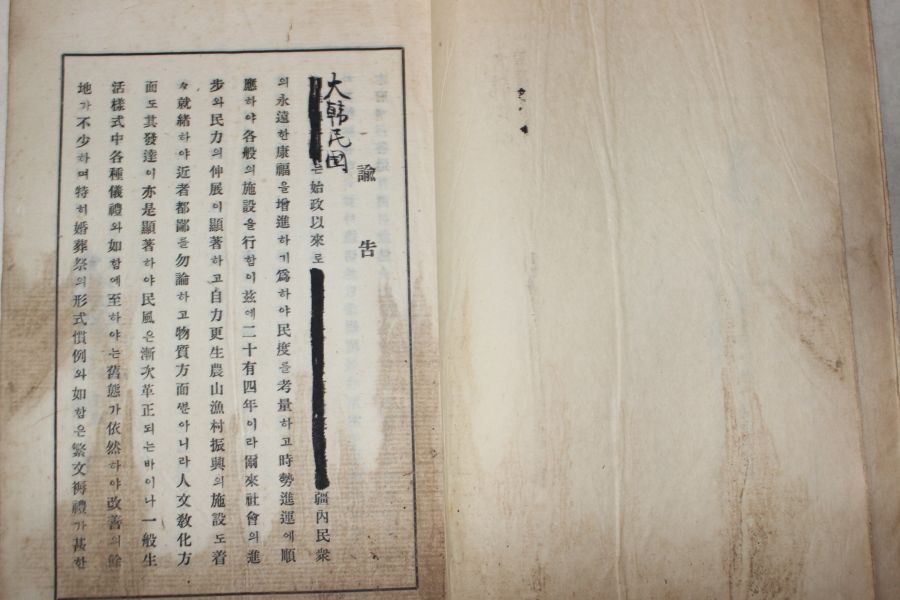 諭告
大韓民国
는始政以來로 疆內民衆
의永遠한康福을增進하기爲하야民度를考量하고時勢進運에順
應하야各般의施設을行함이玆에二十有四年이라爾來社會의進
步와民力의伸展이顯著하고自力更生農山漁村振興의施設도着
々就緖하야近者都鄙를勿論하고物質方面ᄲᅮᆫ아니라人文敎化方
面도其發達이亦是顯著하야民風은漸次革正되는바이나一般生
活樣式中各種儀禮와如함에至하야는舊態가依然하야改善의餘
地가不少하며特히婚葬祭의形式慣例와如함은繁文縟禮가甚한